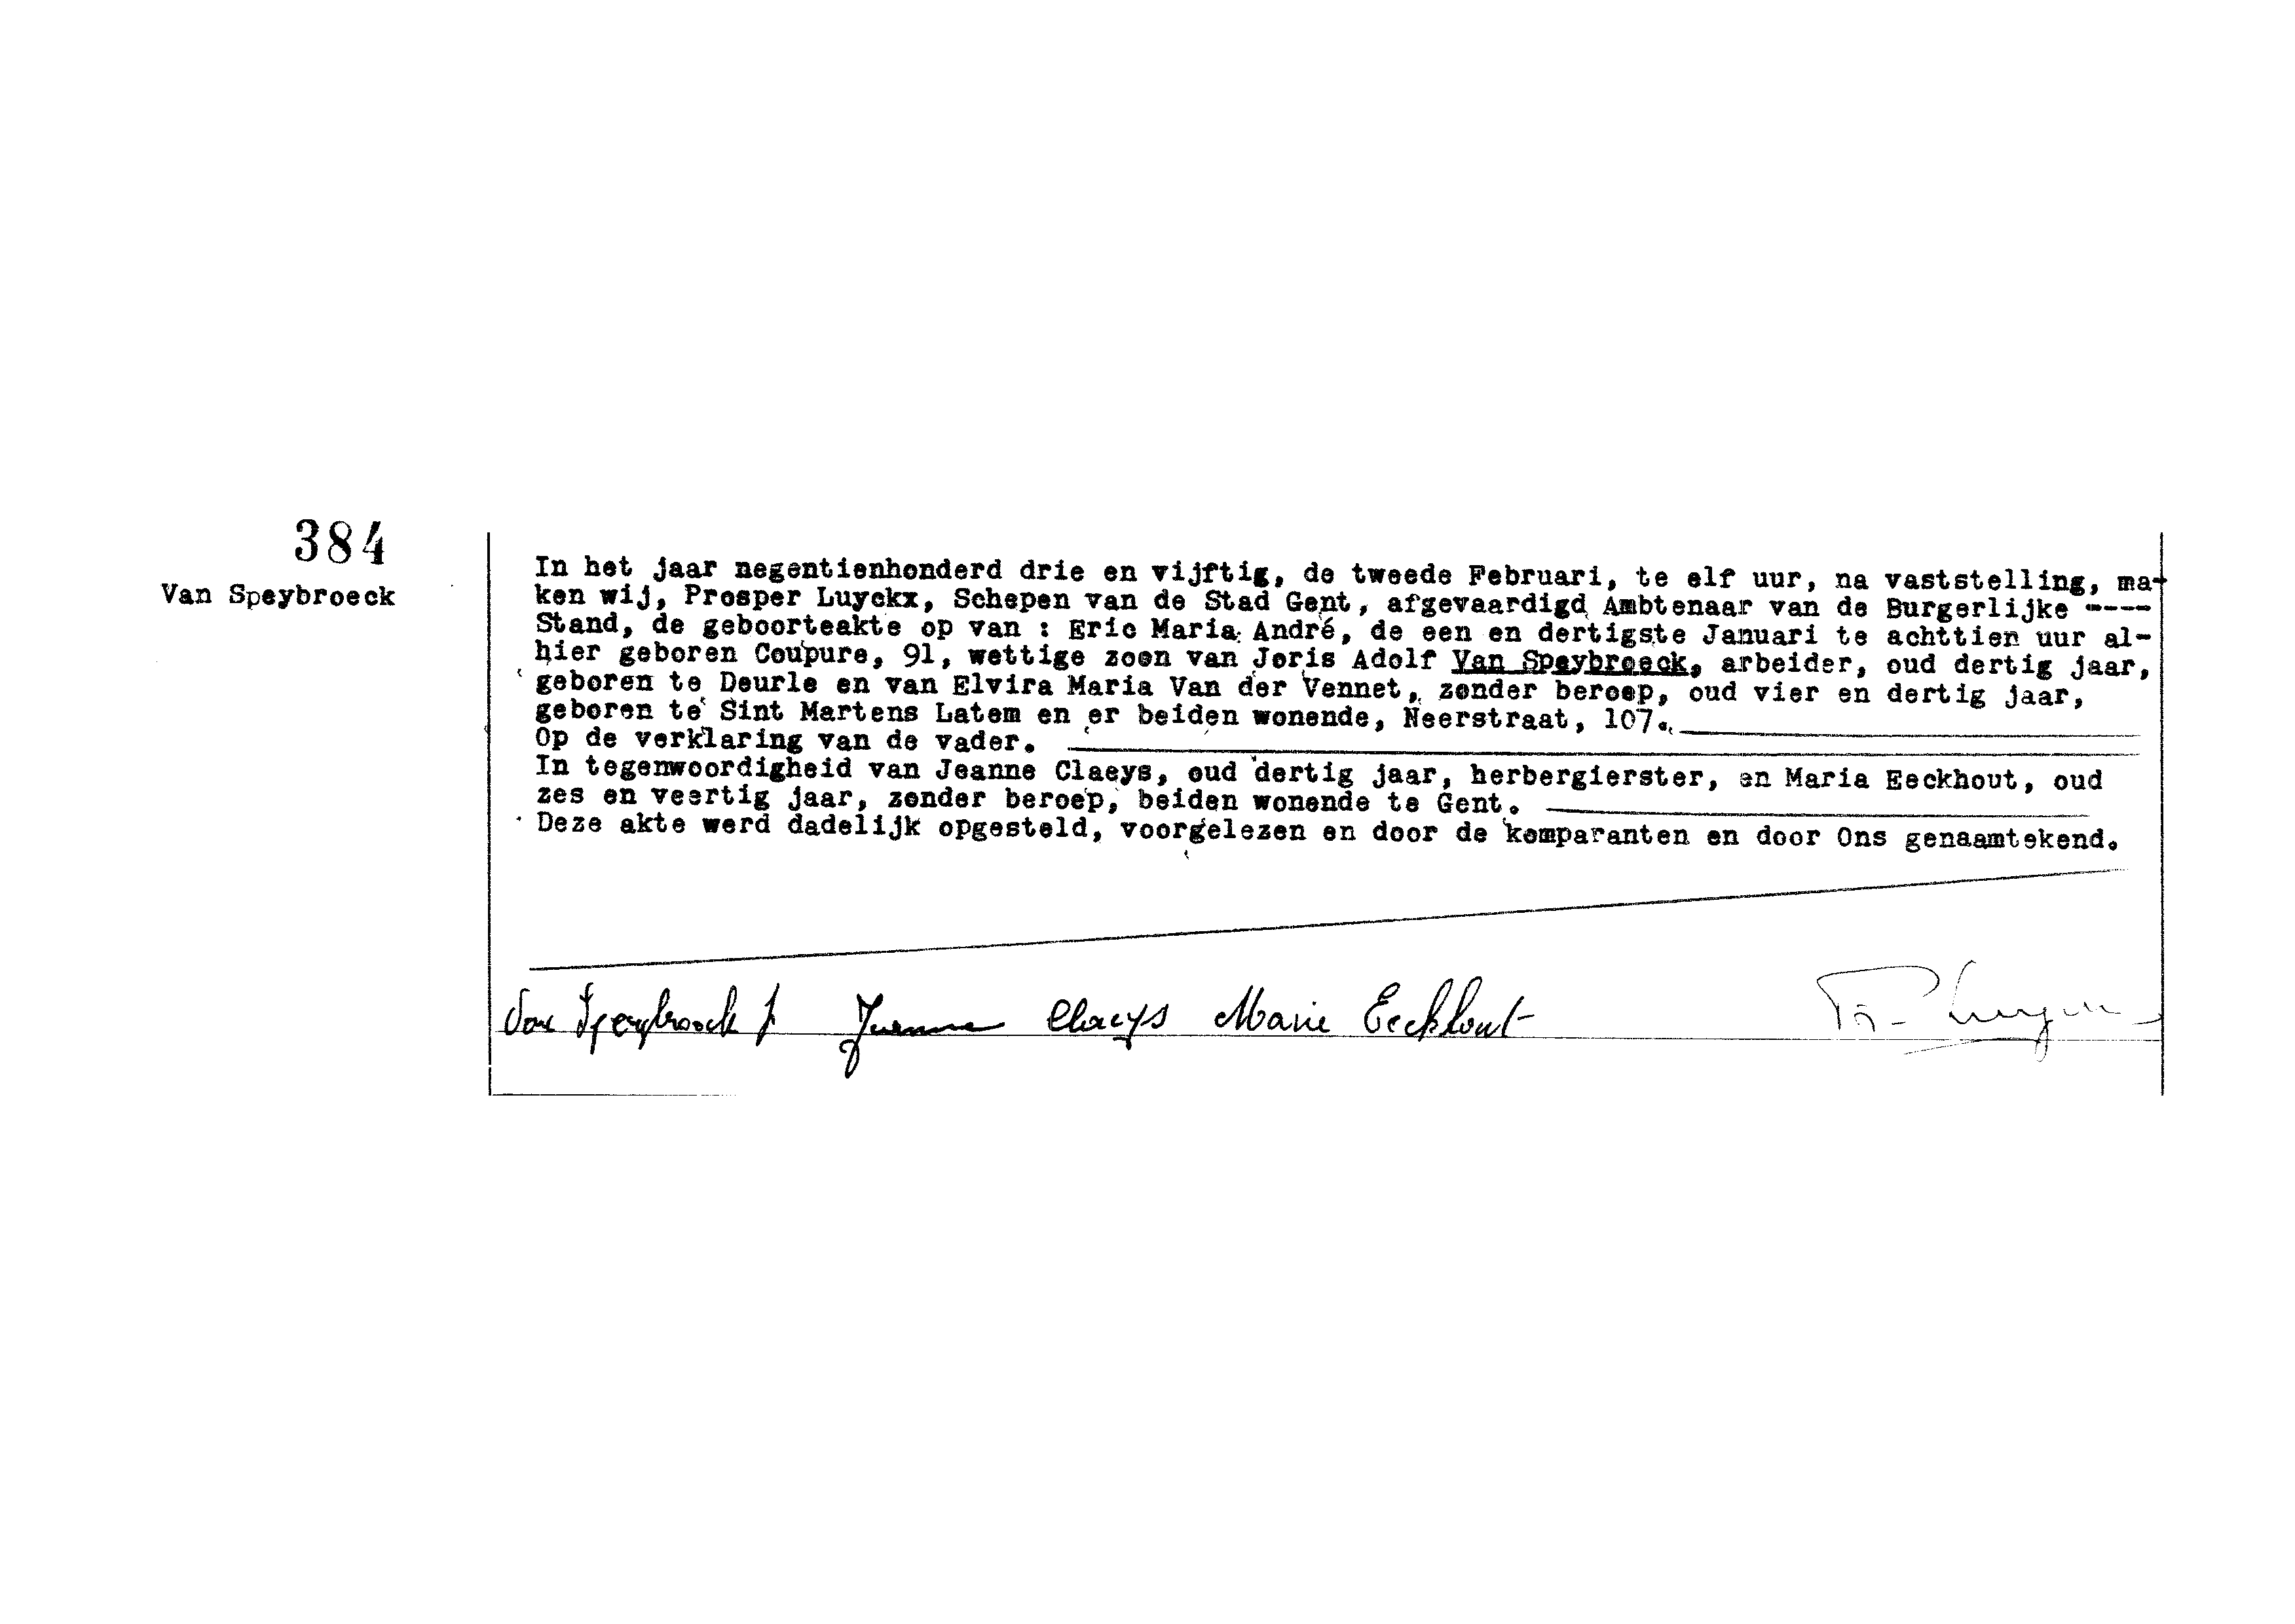 384
Van Speybroeck
In het jaar negentienhonderd drie en vijftig, de tweede Februari, te elf uur, na vaststelling, ma-
ken wij, Prosper Luyckx, Schepen van de Stad Gent, afgevaardigd Ambtenaar van de Burgerlijke ----
Stand, de geboorteakte op van : Eric Maria André, de een en dertigste Januari te achttien uur al-
hier geboren Coupure, 91, wettige zoon van Joris Adolf Van Speybroeck, arbeider, oud dertig jaar,
geboren te Deurle en van Elvira Maria Van der Vennet, zonder beroep, oud vier en dertig jaar,
geboren te Sint Martens Latem en er beiden wonende, Neerstraat, 107.
Op de verklaring van de vader.
In tegenwoordigheid van Jeanne Claeys, oud dertig jaar, herbergierster, en Maria Eeckhout, oud
zes en veertig jaar, zonder beroep, beiden wonende te Gent.
Deze akte werd dadelijk opgesteld, voorgelezen en door de komparanten en door Ons genaamtekend.
Van Speybroeck J Jeanne Claeys Marie Eeckhout